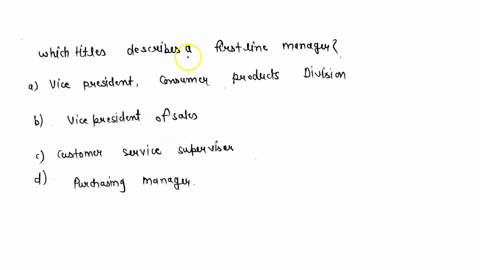 which titles describes a first line manager?
a) Vice president, Consumer products Division
b) Vice president of sales
c) Customer service supervisor
d) Purchasing manager.